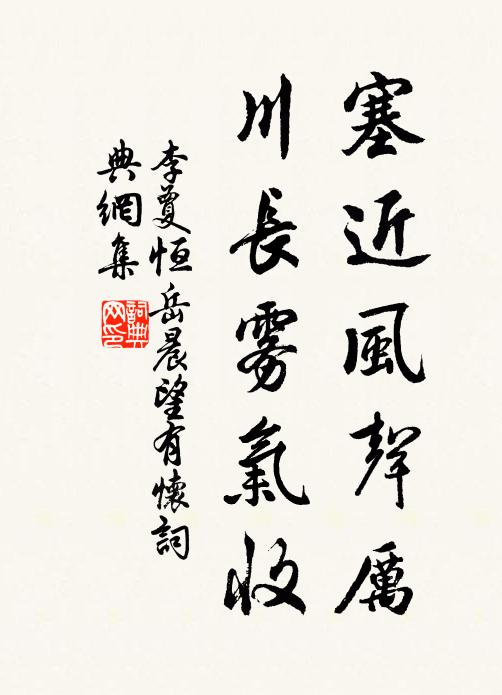 塞近風聲厲
川長霧氣收
李夐恒岳晨望有懷詞
典網集
詞典
网印